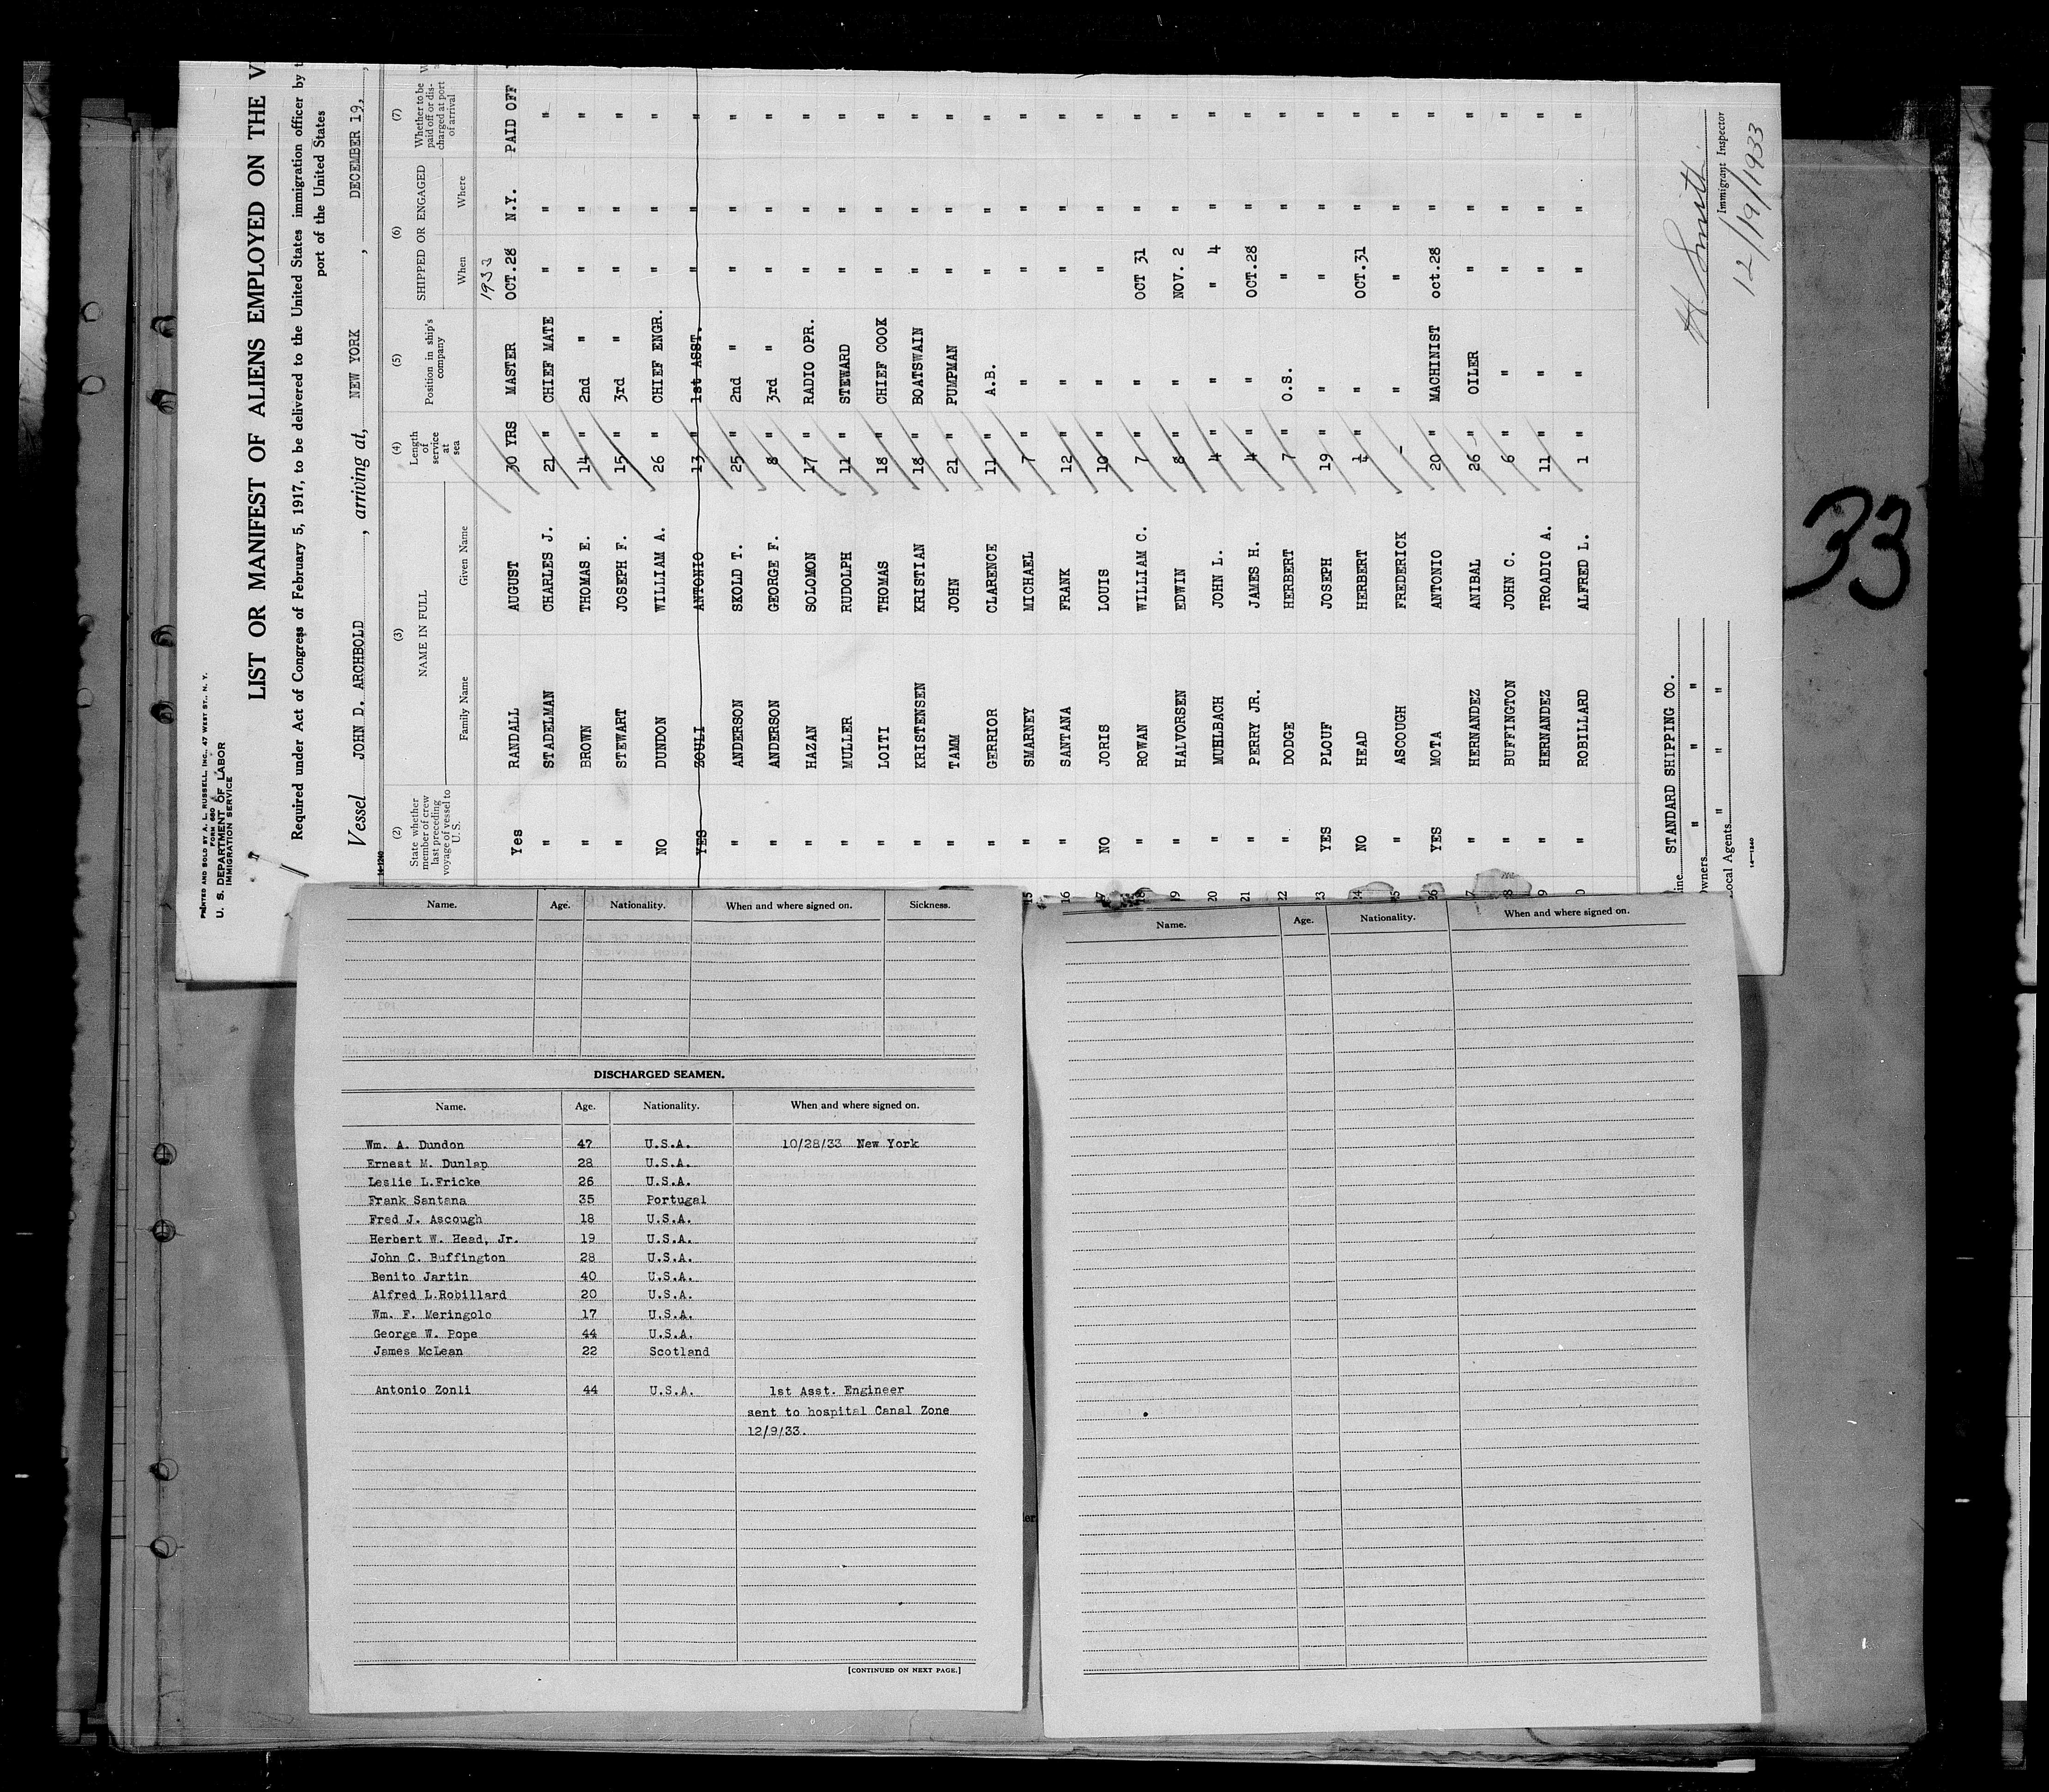 PRINTED AND SOLD BY A. L. RUSSELL, INC., 47 WEST ST., N. Y.
FORM 680
U. S. DEPARTMENT OF LABOR
IMMIGRATION SERVICE
LIST OR MANIFEST OF ALIENS EMPLOYED ON THE V
Required under Act of Congress of February 5, 1917, to be delivered to the United States immigration officer by t
port of the United States
Vessel JOHN D. ARCHBOLD, arriving at, NEW YORK, DECEMBER 19,
14-1240
(2) (3) (4) (5) (6) (7)
State whether member of crew last preceding voyage of vessel to U. S. NAME IN FULL Length of service at sea Position in ship's company SHIPPED OR ENGAGED Whether to be paid off or discharged at port of arrival
Family Name Given Name When Where
1933
Yes RANDALL AUGUST 30 YRS MASTER OCT.28 N.Y. PAID OFF
" STADELMAN CHARLES J. 21 " CHIEF MATE " " "
" BROWN THOMAS E. 14 " 2nd " " " "
" STEWART JOSEPH F. 15 " 3rd " " " "
NO DUNDON WILLIAM A. 26 " CHIEF ENGR. " " "
YES ZOULI ANTONIO 13 " 1st ASST. " " "
" ANDERSON SKOLD T. 25 " 2nd " " " "
" ANDERSON GEORGE F. 8 " 3rd " " " "
" HAZAN SOLOMON 17 " RADIO OPR. " " "
" MULLER RUDOLPH 11 " STEWARD " " "
" LOITI THOMAS 18 " CHIEF COOK " " "
" KRISTENSEN KRISTIAN 18 " BOATSWAIN " " "
" TAMM JOHN 21 " PUMPMAN " " "
" GERRIOR CLARENCE 11 " A.B. " " "
15 " SMARNEY MICHAEL 7 " " " " "
16 " SANTANA FRANK 12 " " " " "
17 NO JORIS LOUIS 10 " " " " "
18 " ROWAN WILLIAM C. 7 " " OCT 31 " "
19 " HALVORSEN EDWIN 8 " " NOV. 2 " "
20 " MUHLBACH JOHN L. 4 " " " 4 " "
21 " PERRY JR. JAMES H. 4 " " OCT.28 " "
22 " DODGE HERBERT 7 " O.S. " " "
23 YES PLOUF JOSEPH 19 " " " " "
24 NO HEAD HERBERT " " OCT.31 " "
25 " ASCOUGH FREDERICK - " " " "
26 YES MOTA ANTONIO 20 " MACHINIST Oct.28 " "
27 " HERNANDEZ ANIBAL 26 " OILER " " "
28 " BUFFINGTON JOHN C. 6 " " " " "
9 " HERNANDEZ TROADIO A. 11 " " " " "
0 " ROBILLARD ALFRED L. 1 " " " " "
ine STANDARD SHIPPING CO.
Owners " " "
Local Agents " " "
14-1240
H. Smith
Immigrant Inspector
12/19/1933
33
Name. Age. Nationality. When and where signed on. Sickness.
DISCHARGED SEAMEN.
Name. Age. Nationality. When and where signed on.
Wm. A. Dundon 47 U.S.A. 10/28/33 New York
Ernest M. Dunlap 28 U.S.A.
Leslie L.Fricke 26 U.S.A.
Frank Santana 35 Portugal
Fred J. Ascough 18 U.S.A.
Herbert W. Head, Jr. 19 U.S.A.
John C. Buffington 28 U.S.A.
Benito Jartin 40 U.S.A.
Alfred L.Robillard 20 U.S.A.
Wm. F. Meringolo 17 U.S.A.
George W. Pope 44 U.S.A.
James McLean 22 Scotland
Antonio Zonli 44 U.S.A. 1st Asst. Engineer
sent to hospital Canal Zone
12/9/33.
[CONTINUED ON NEXT PAGE.]
Name. Age. Nationality. When and where signed on.